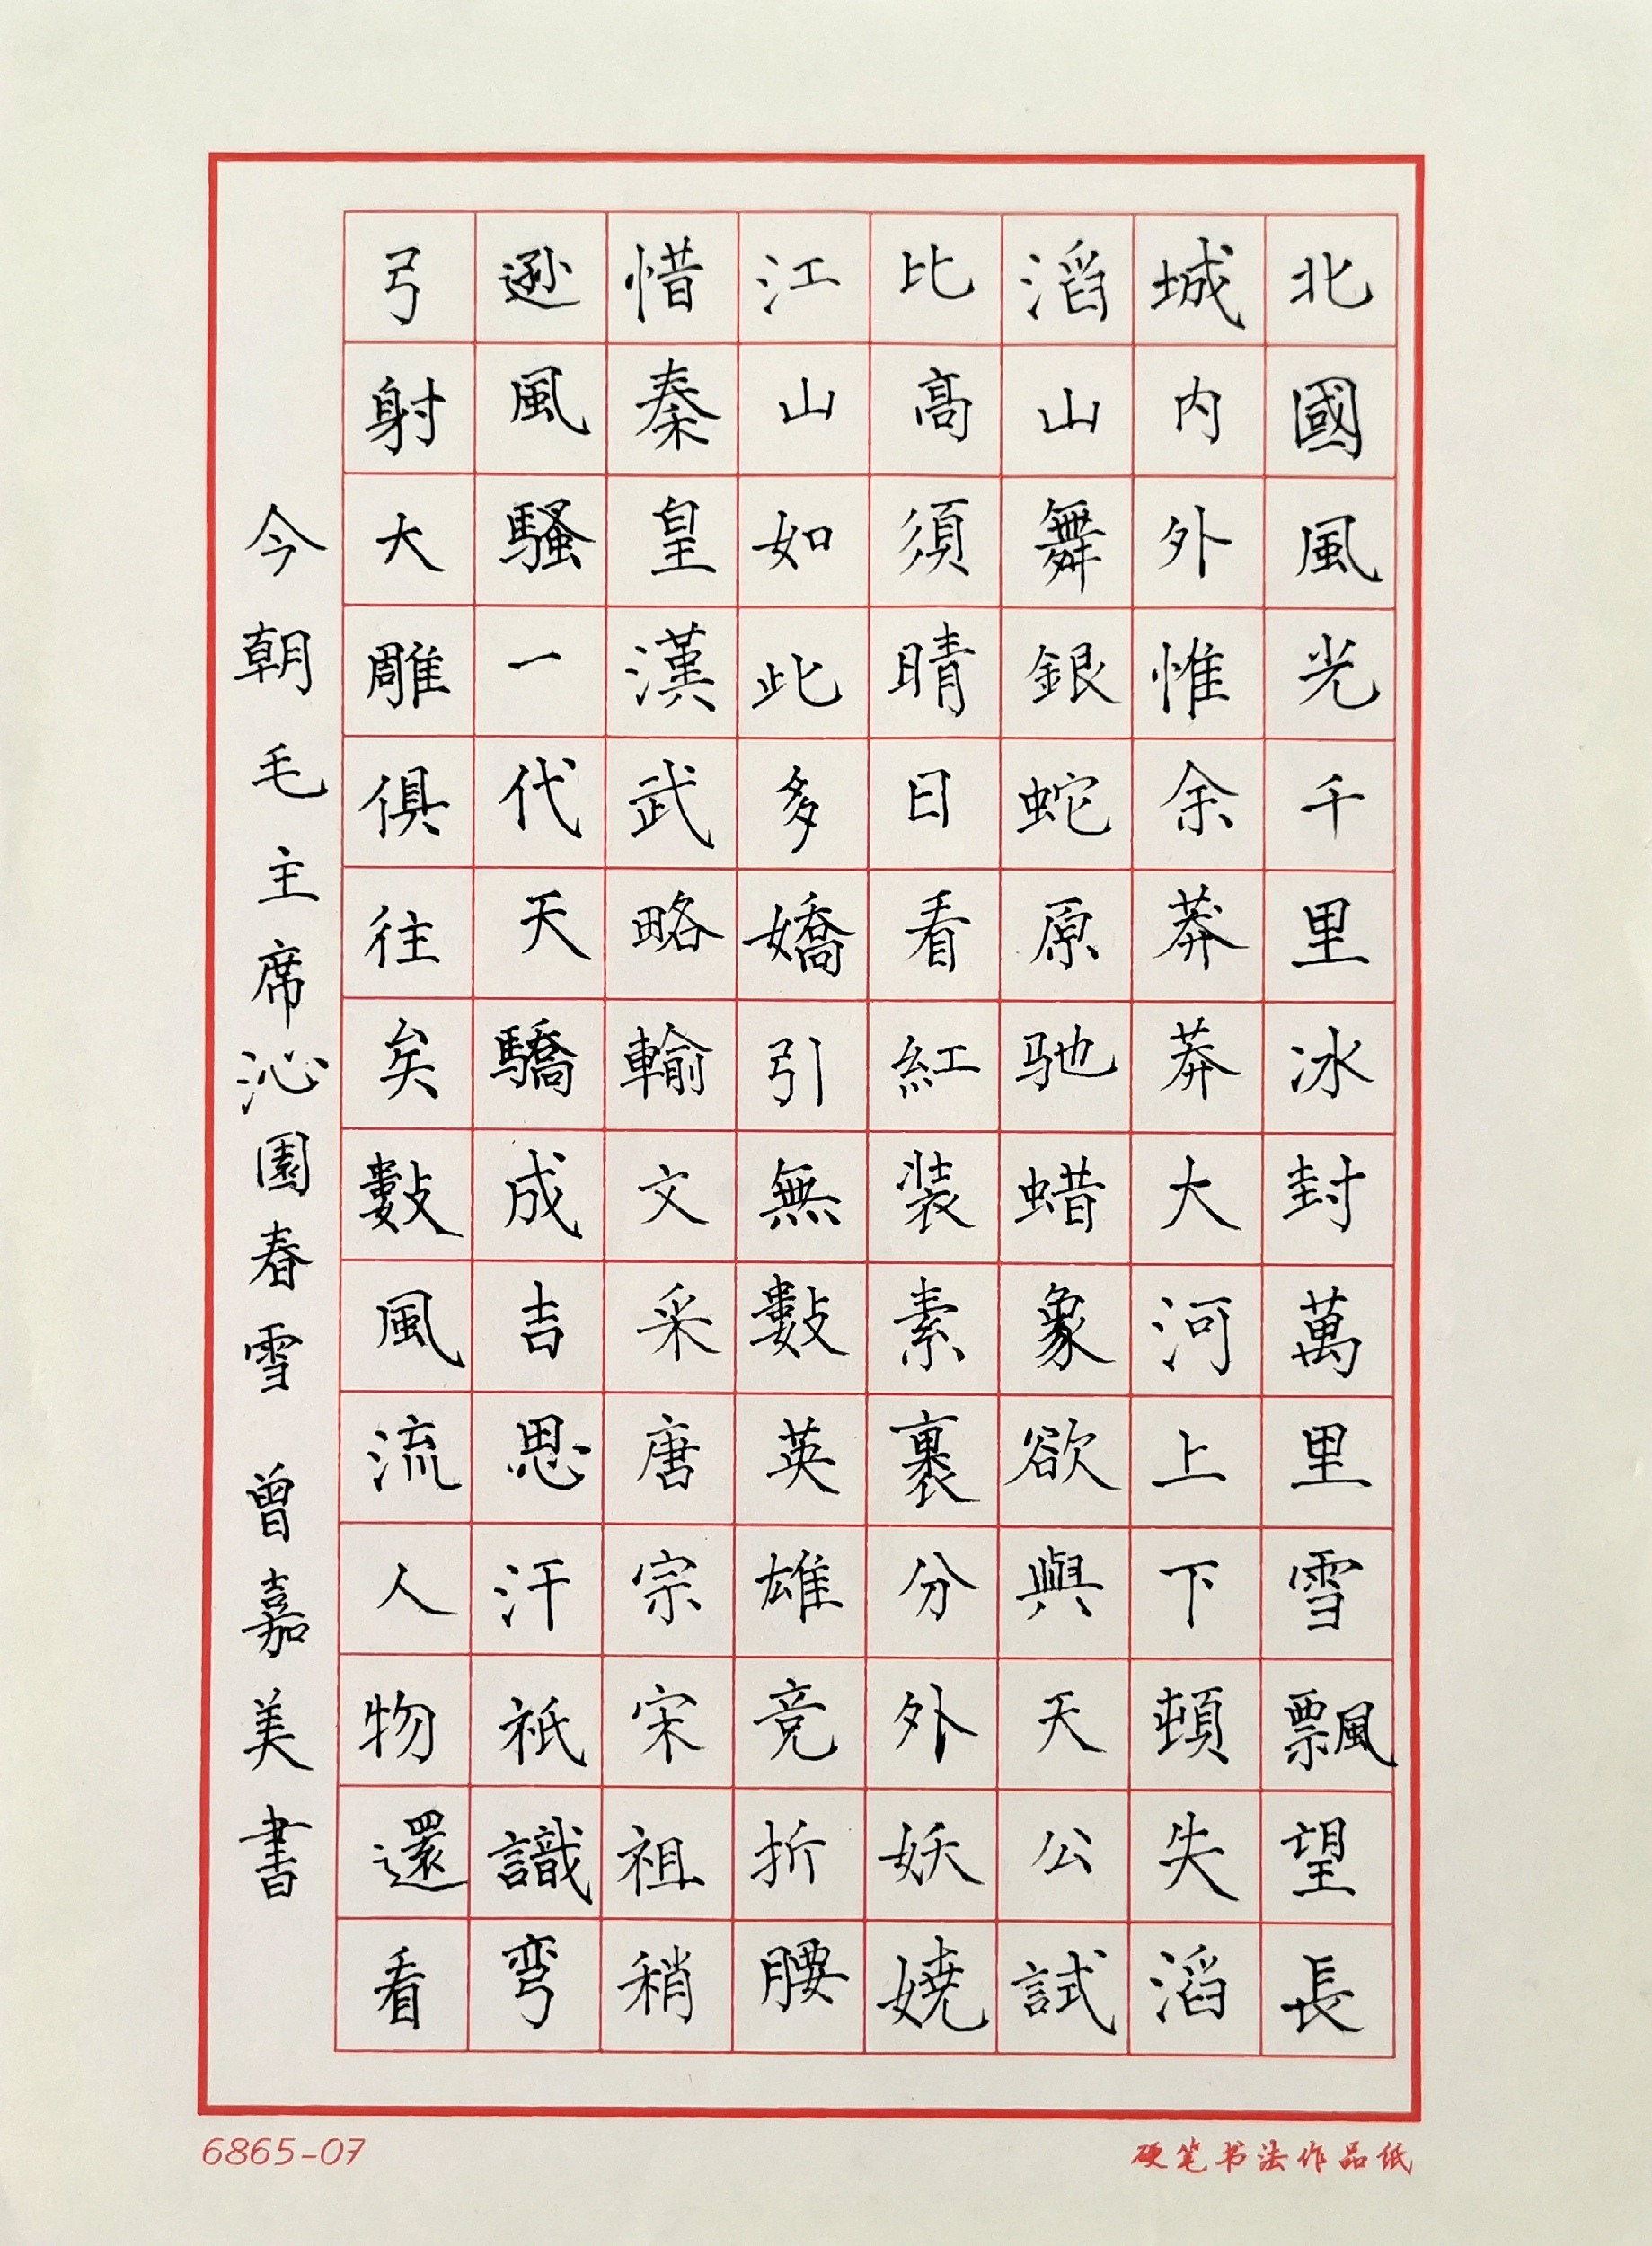 北國風光千里冰封萬里雪飄望長
城内外惟余莽莽大河上下頓失滔
滔山舞銀蛇原驰蜡象欲與天公試
比高須晴日看紅装素裹分外妖娆
江山如此多嬌引無數英雄竞折腰
惜秦皇漢武略輸文采唐宗宋祖稍
逊風騷一代天驕成吉思汗祇識弯
弓射大雕俱往矣數風流人物還看
今朝毛主席沁園春雪 曾嘉美書
6865-07
硬笔书法作品纸